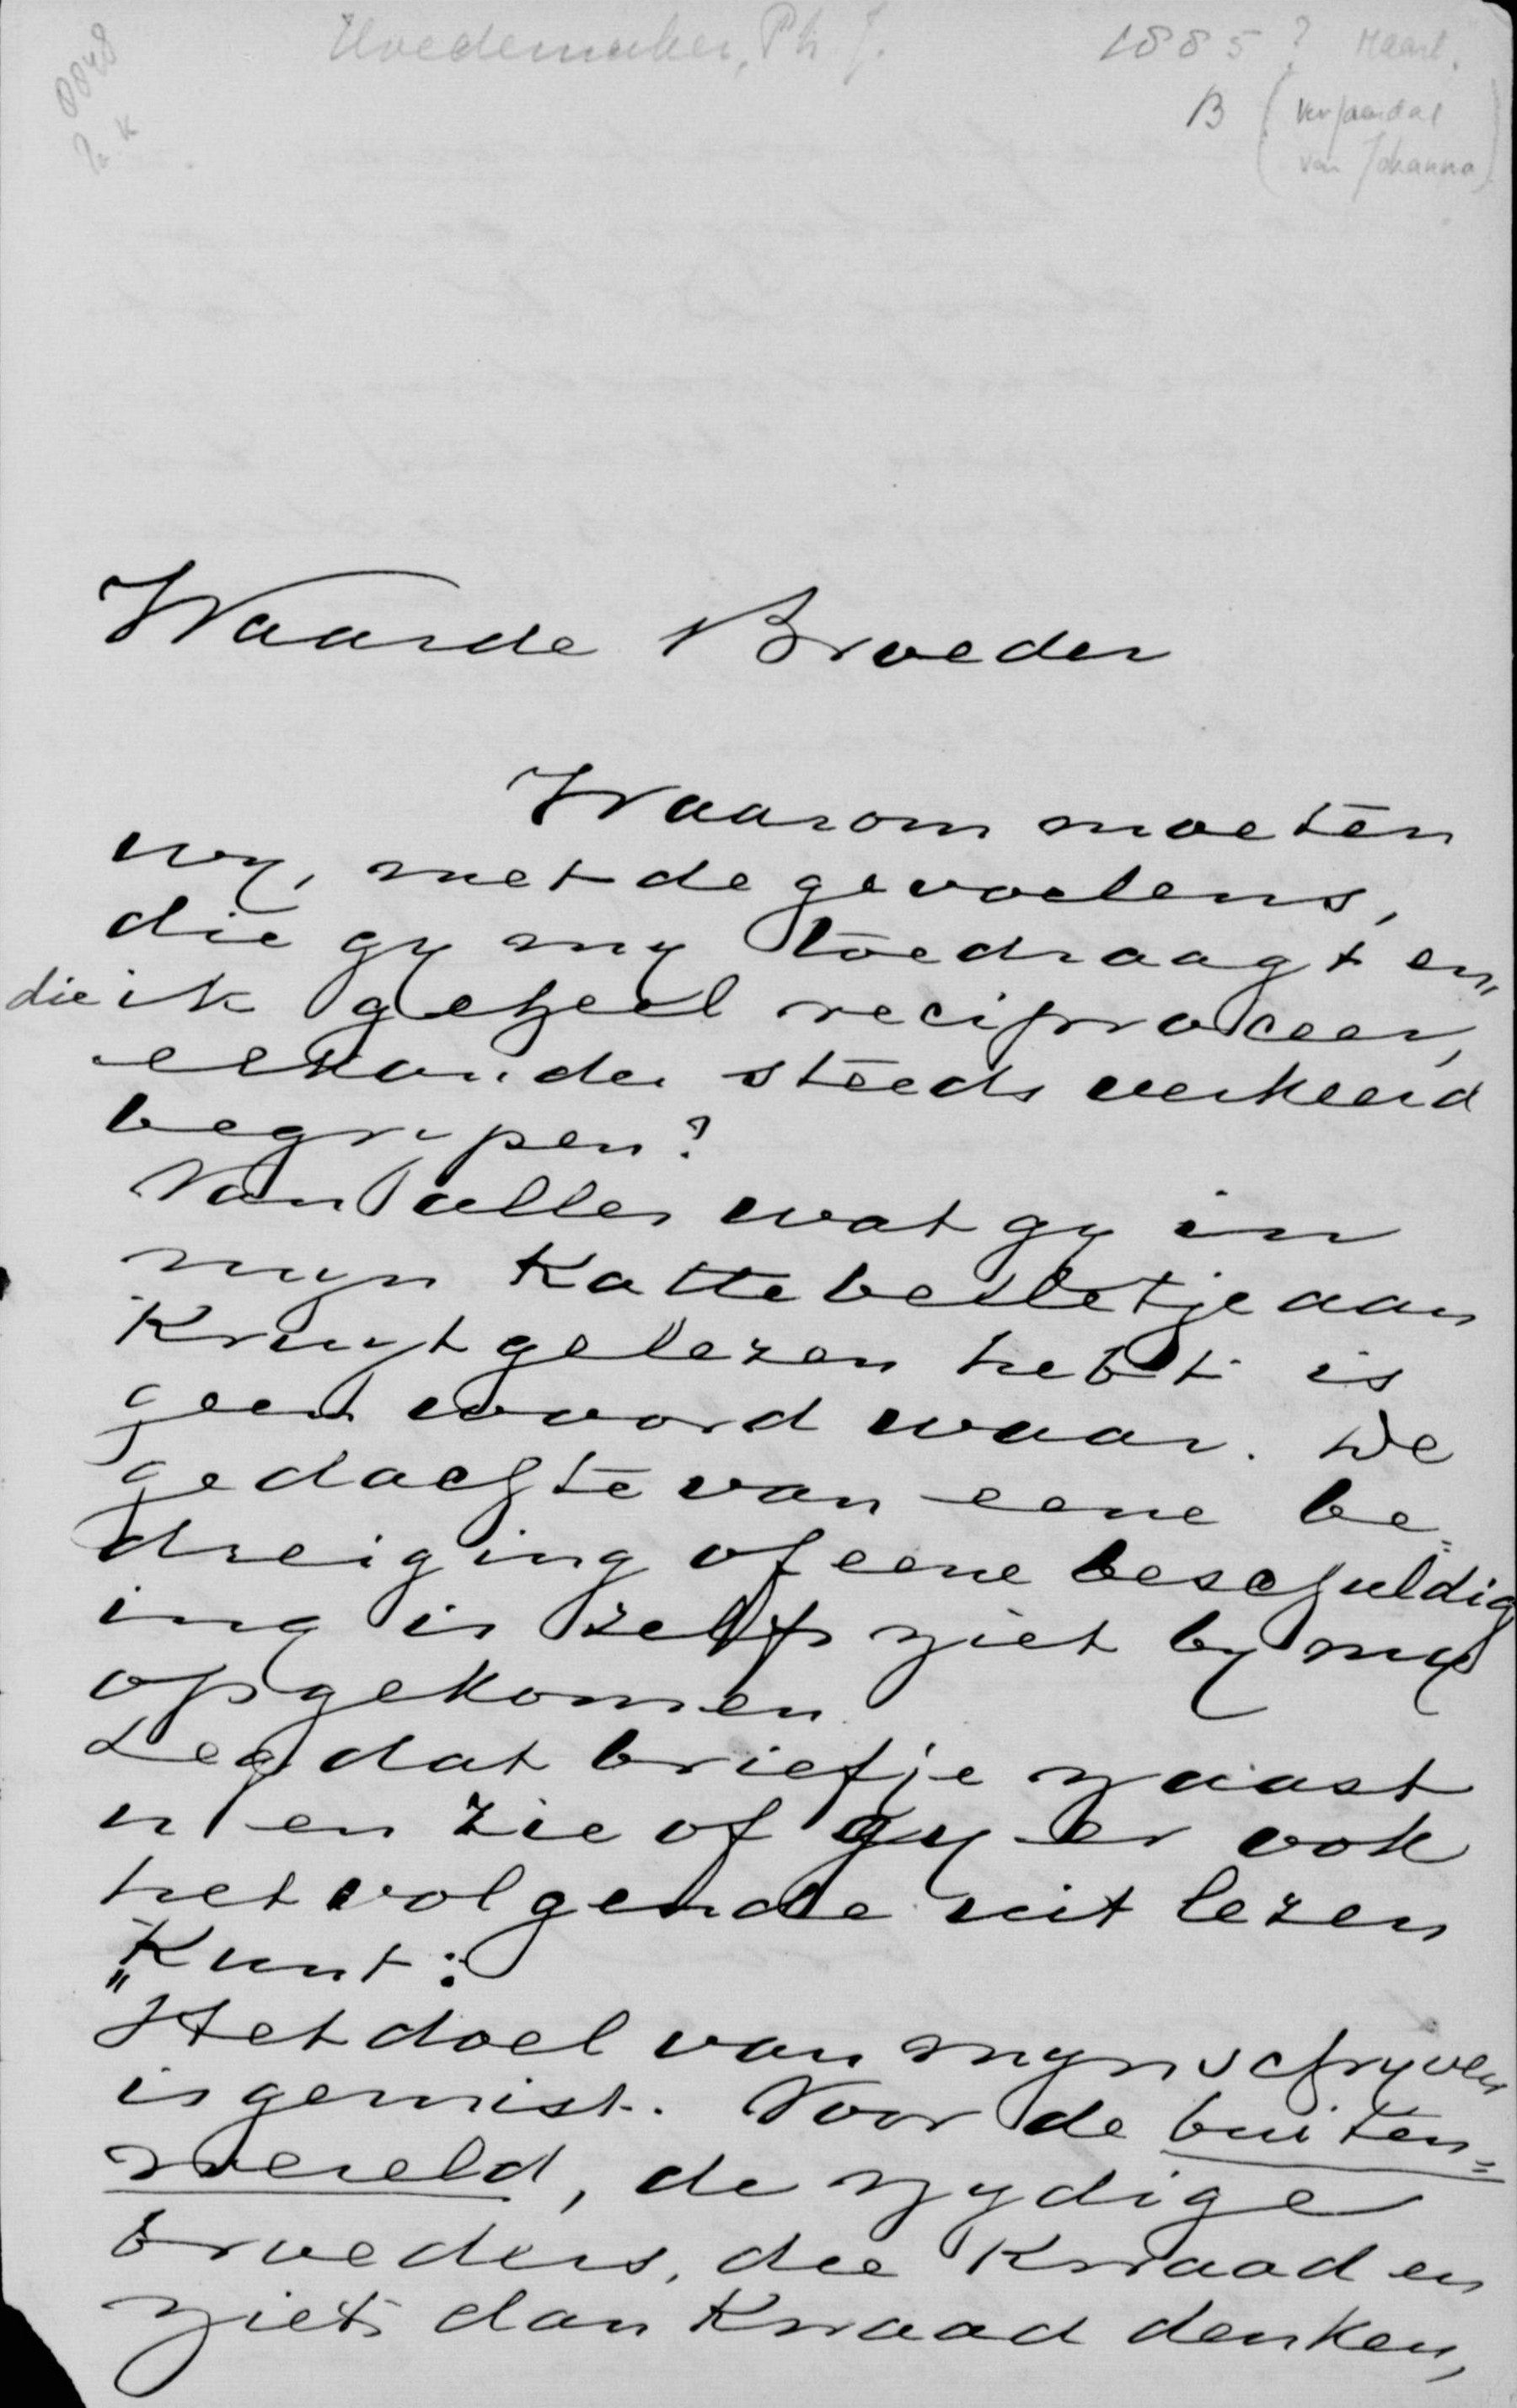 Hoedemaker, Ph. J. 1885? Maart.
0848
B (verjaardag
van Johanna)
Waarde Broeder
Waarom moeten
wy, met de gevoelens,
die gy my toedraagt en
die ik geheel reciproceer,
elkander steeds verkeerd
begrypen?
Van alles wat gy in
myn Kattebelletje aan
Kruyt gelezen hebt is
geen woord waar. De
gedachte van eene be=
dreiging of eene beschuldig
ing is zelfs niet by my
opgekomen.
Leg dat briefje naast
u en zie of gy er ook
het volgende uit lezen
Kunt:
"Het doel van myn schryven
is gemist. Voor de buiten=
wereld, de nydige
broeders, die Kwaad en
niets dan Kwaad denken,